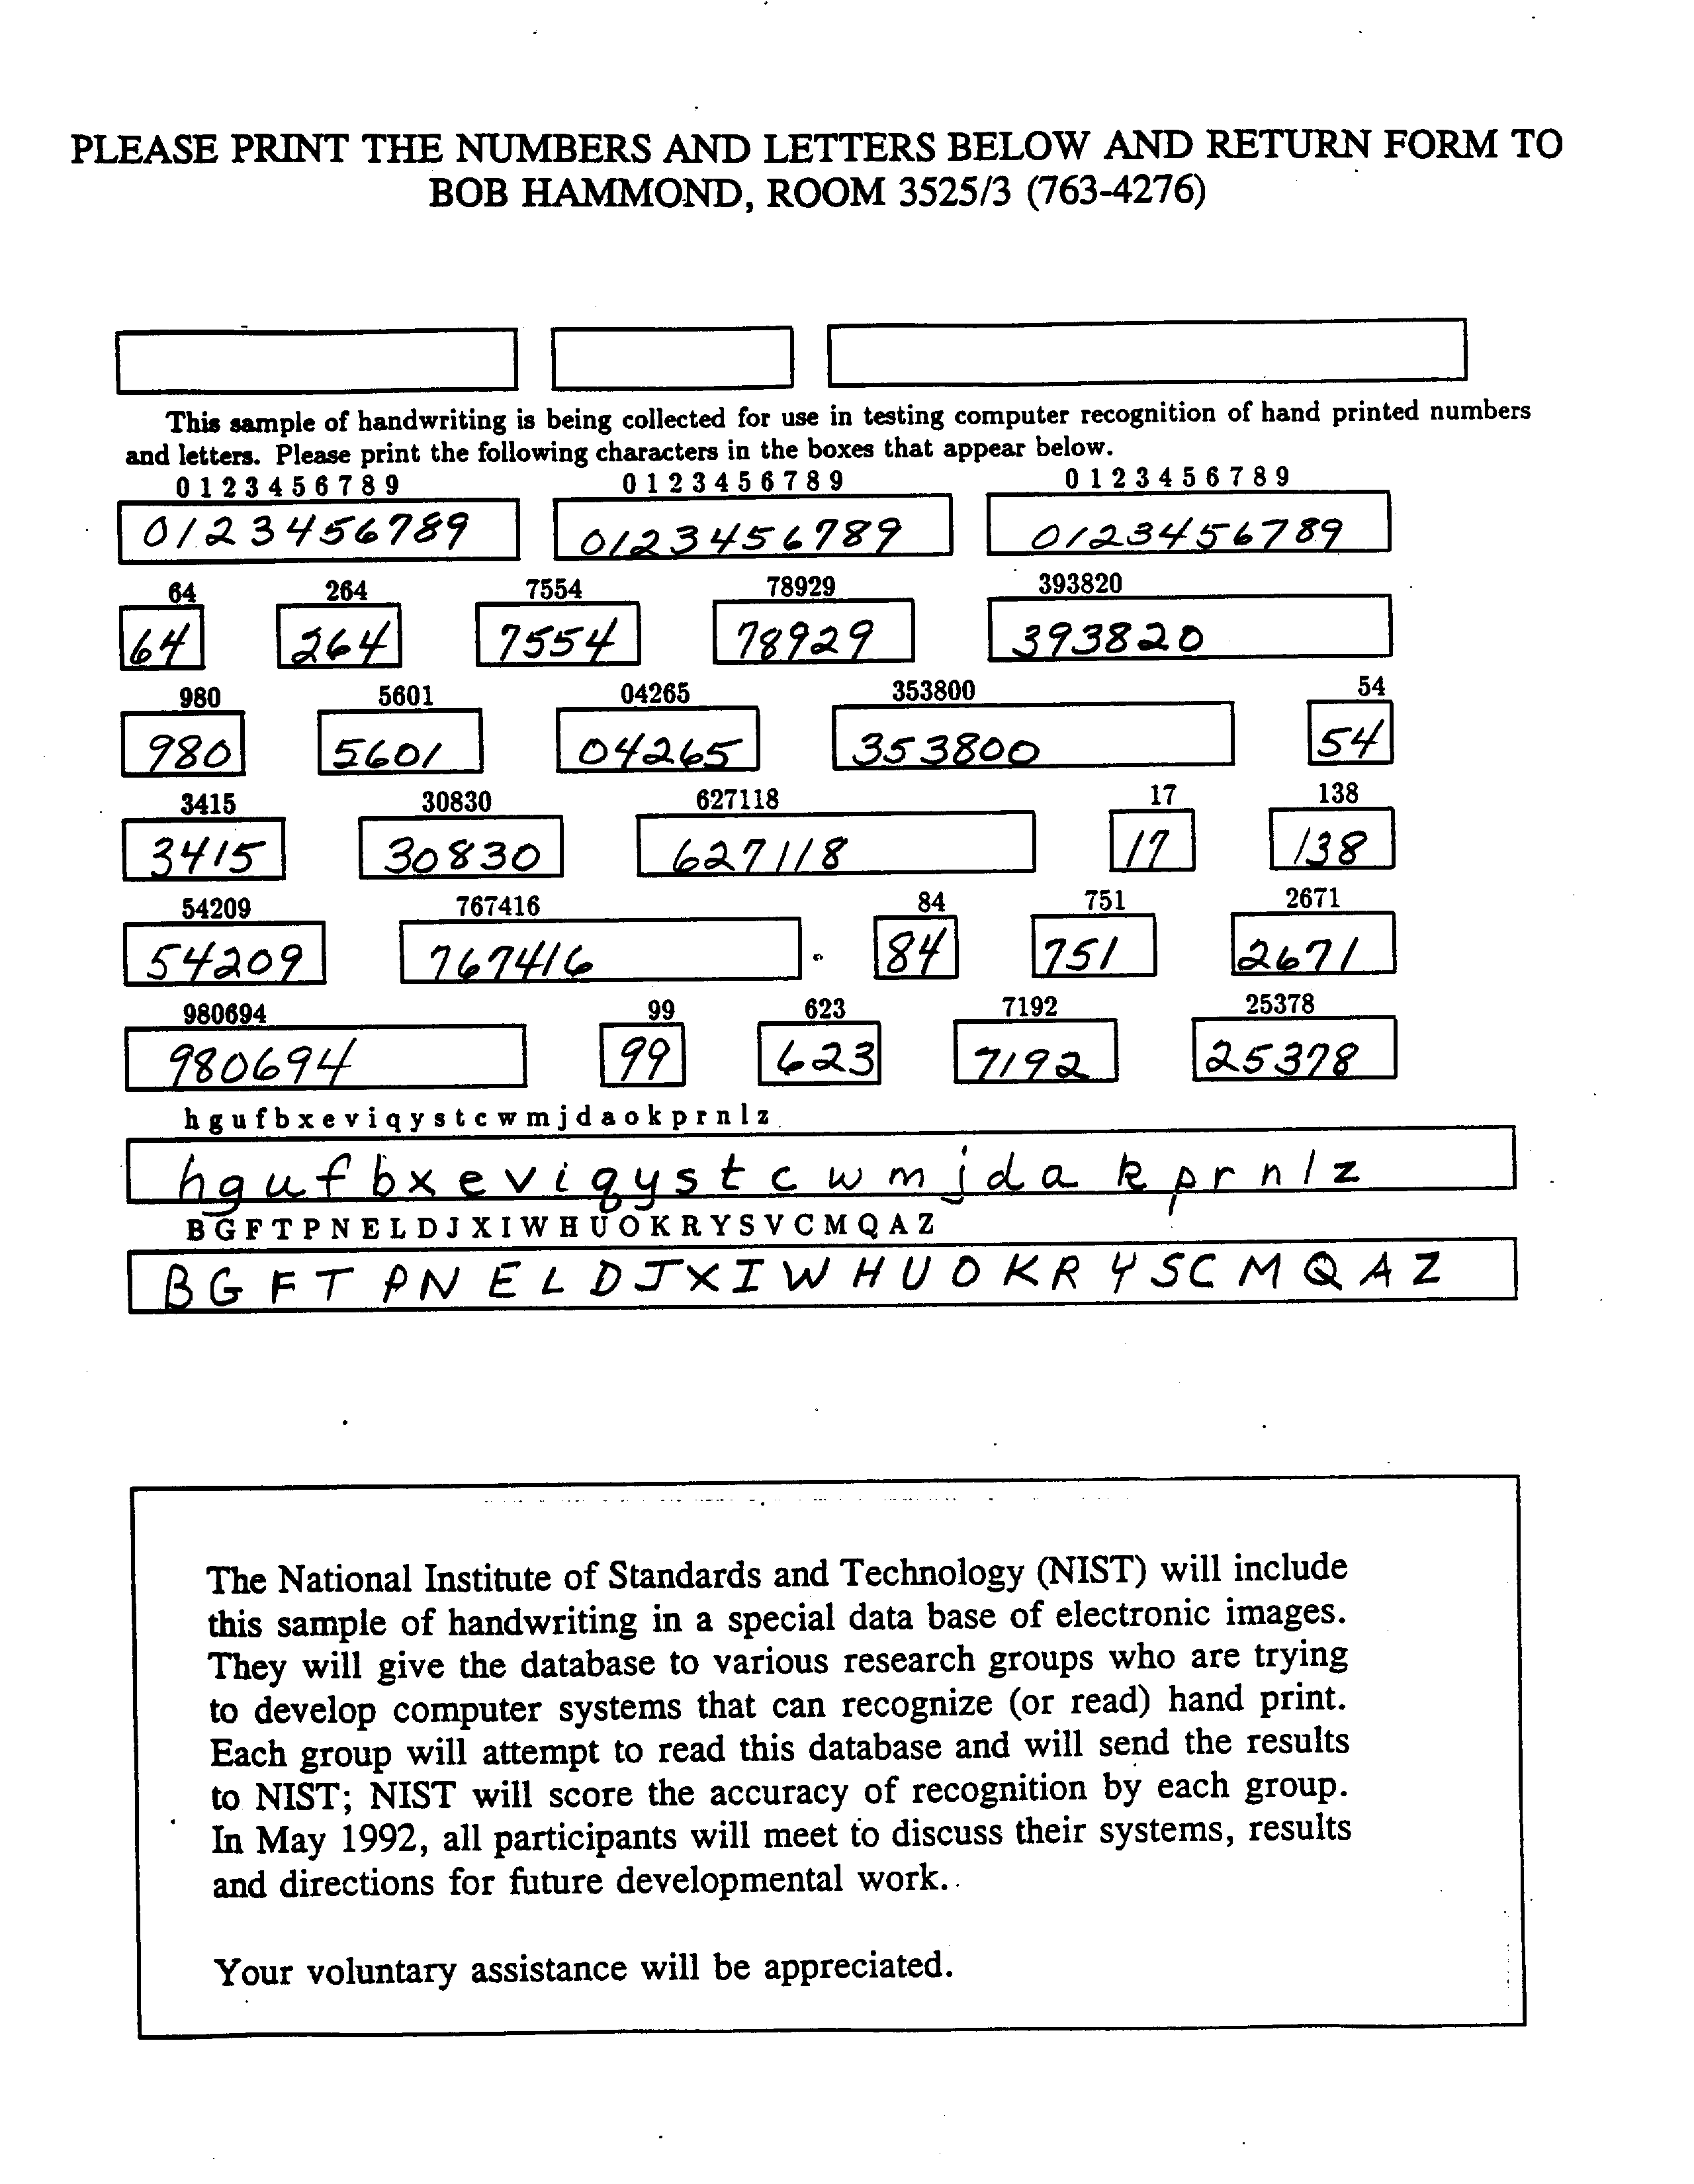 PLEASE PRINT THE NUMBERS AND LETTERS BELOW AND RETURN FORM TO
BOB HAMMOND, ROOM 3525/3 (763-4276)
This sample of handwriting is being collected for use in testing computer recognition of hand printed numbers
and letters. Please print the following characters in the boxes that appear below.
0 1 2 3 4 5 6 7 8 9 0 1 2 3 4 5 6 7 8 9 0 1 2 3 4 5 6 7 8 9
0123456789 0123456789 0123456789
64 264 7554 78929 393820
64 264 7554 78929 393820
980 5601 04265 353800 54
980 5601 04265 353800 54
3415 30830 627118 17 138
3415 30830 627118 17 138
54209 767416 84 751 2671
54209 767416 84 751 2671
980694 99 623 7192 25378
980694 99 623 7192 25378
h g u f b x e v i q y s t c w m j d a o k p r n l z
h g u f b x e v i q y s t c w m j d a k p r n l z
B G F T P N E L D J X I W H U O K R Y S V C M Q A Z
B G F T P N E L D J X I W H U O K R Y S C M Q A Z
The National Institute of Standards and Technology (NIST) will include
this sample of handwriting in a special data base of electronic images.
They will give the database to various research groups who are trying
to develop computer systems that can recognize (or read) hand print.
Each group will attempt to read this database and will send the results
to NIST; NIST will score the accuracy of recognition by each group.
In May 1992, all participants will meet to discuss their systems, results
and directions for future developmental work.
Your voluntary assistance will be appreciated.